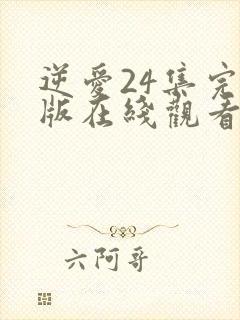 逆愛24集完
版在綫觀看
六阿哥